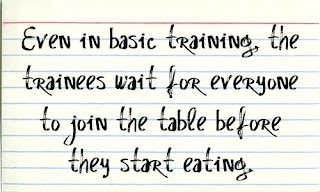 Even in basic training, the
trainees wait for everyone
to join the table before
they start eating.